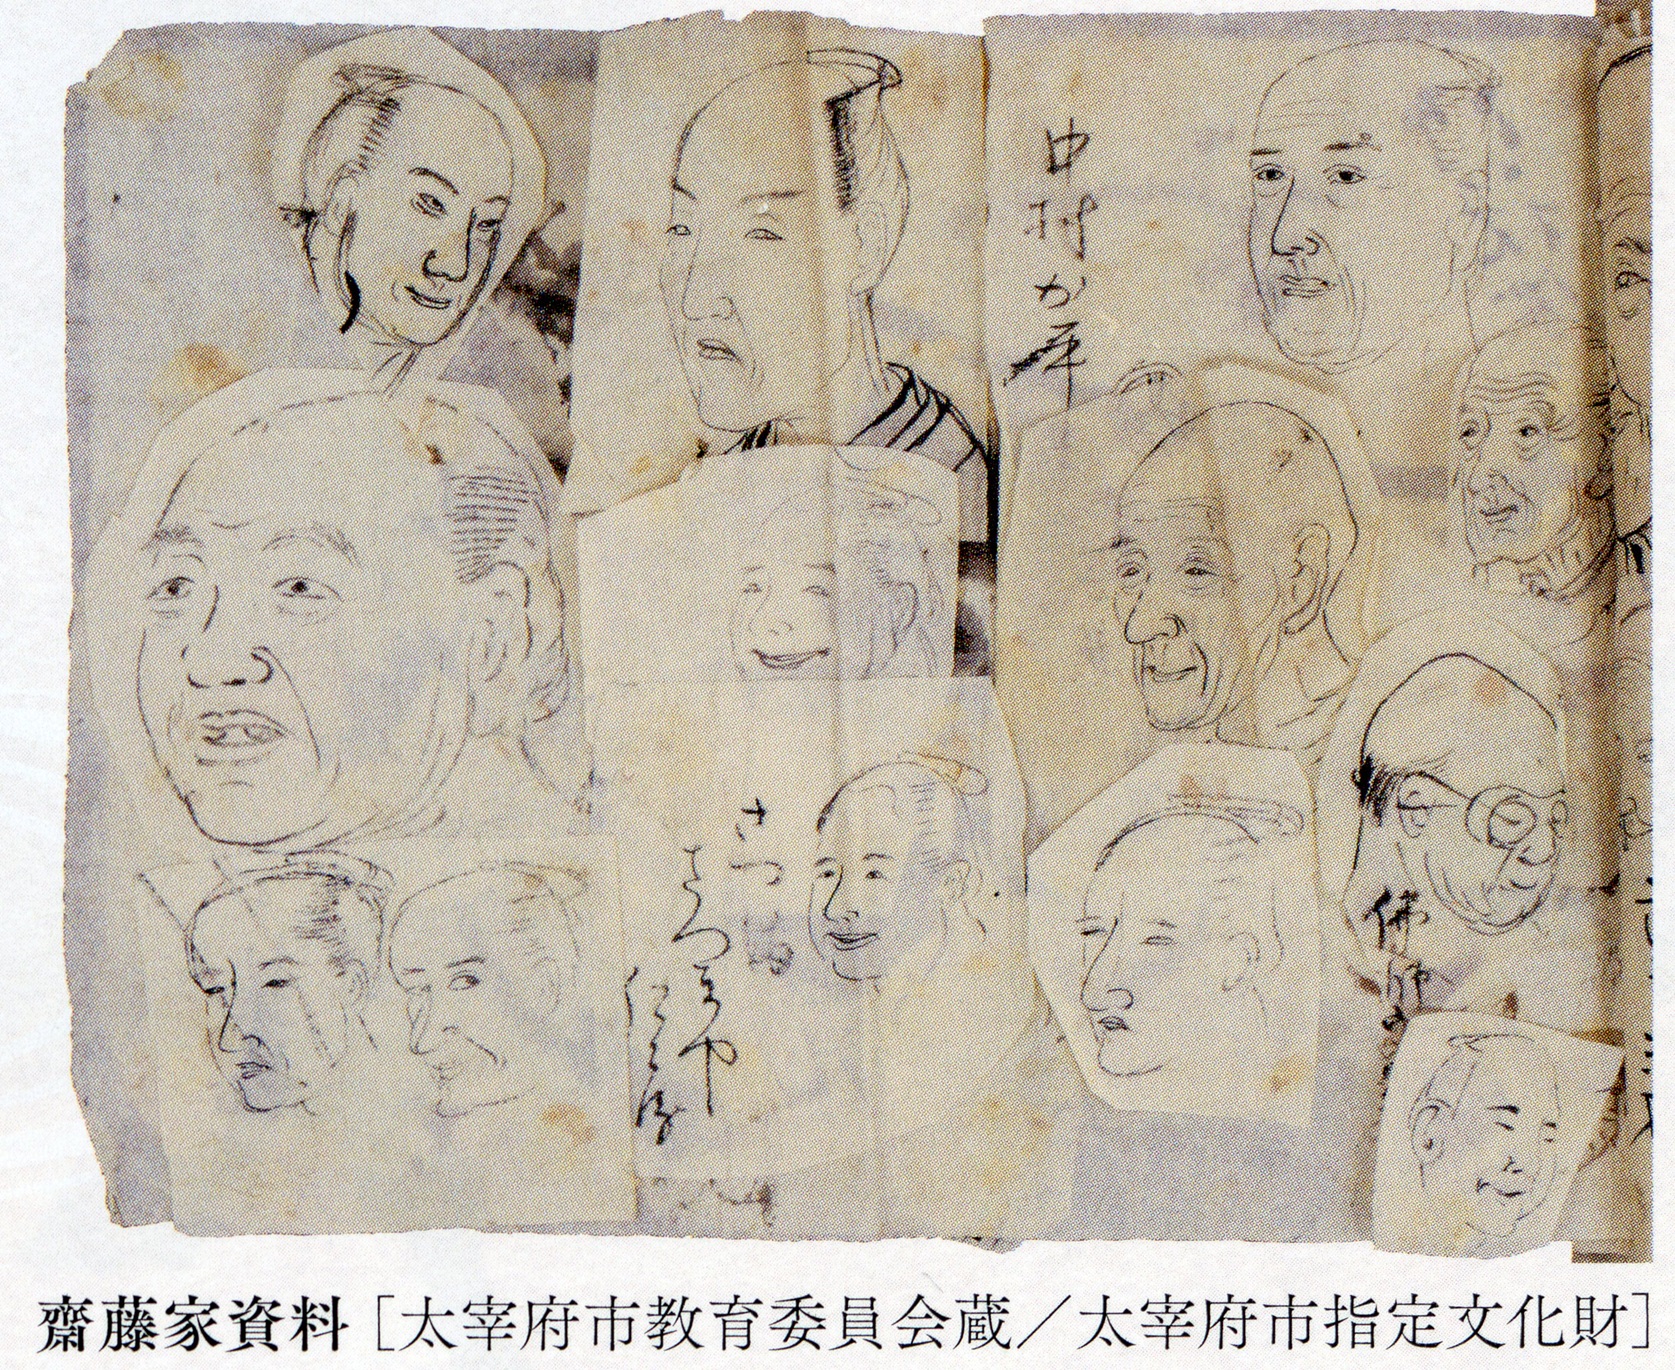 中村か平
佛師
さつ
さつまや
仁三郎
齋藤家資料［太宰府市教育委員会蔵／太宰府市指定文化財］